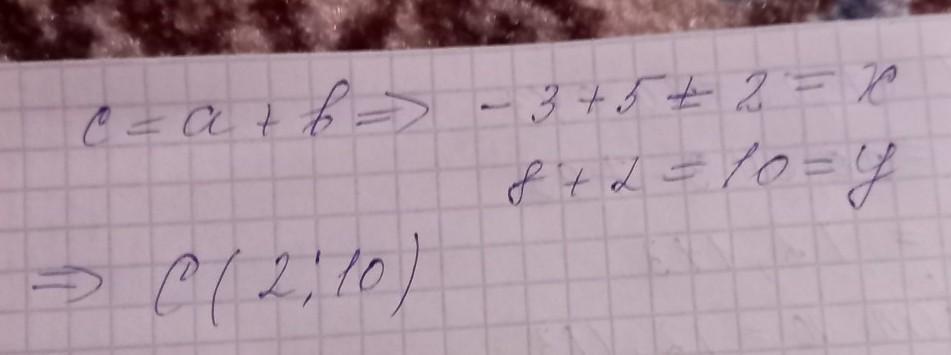 c = a + b => -3+5 = 2 = x
8+2 = 10 = y
=> C(2;10)